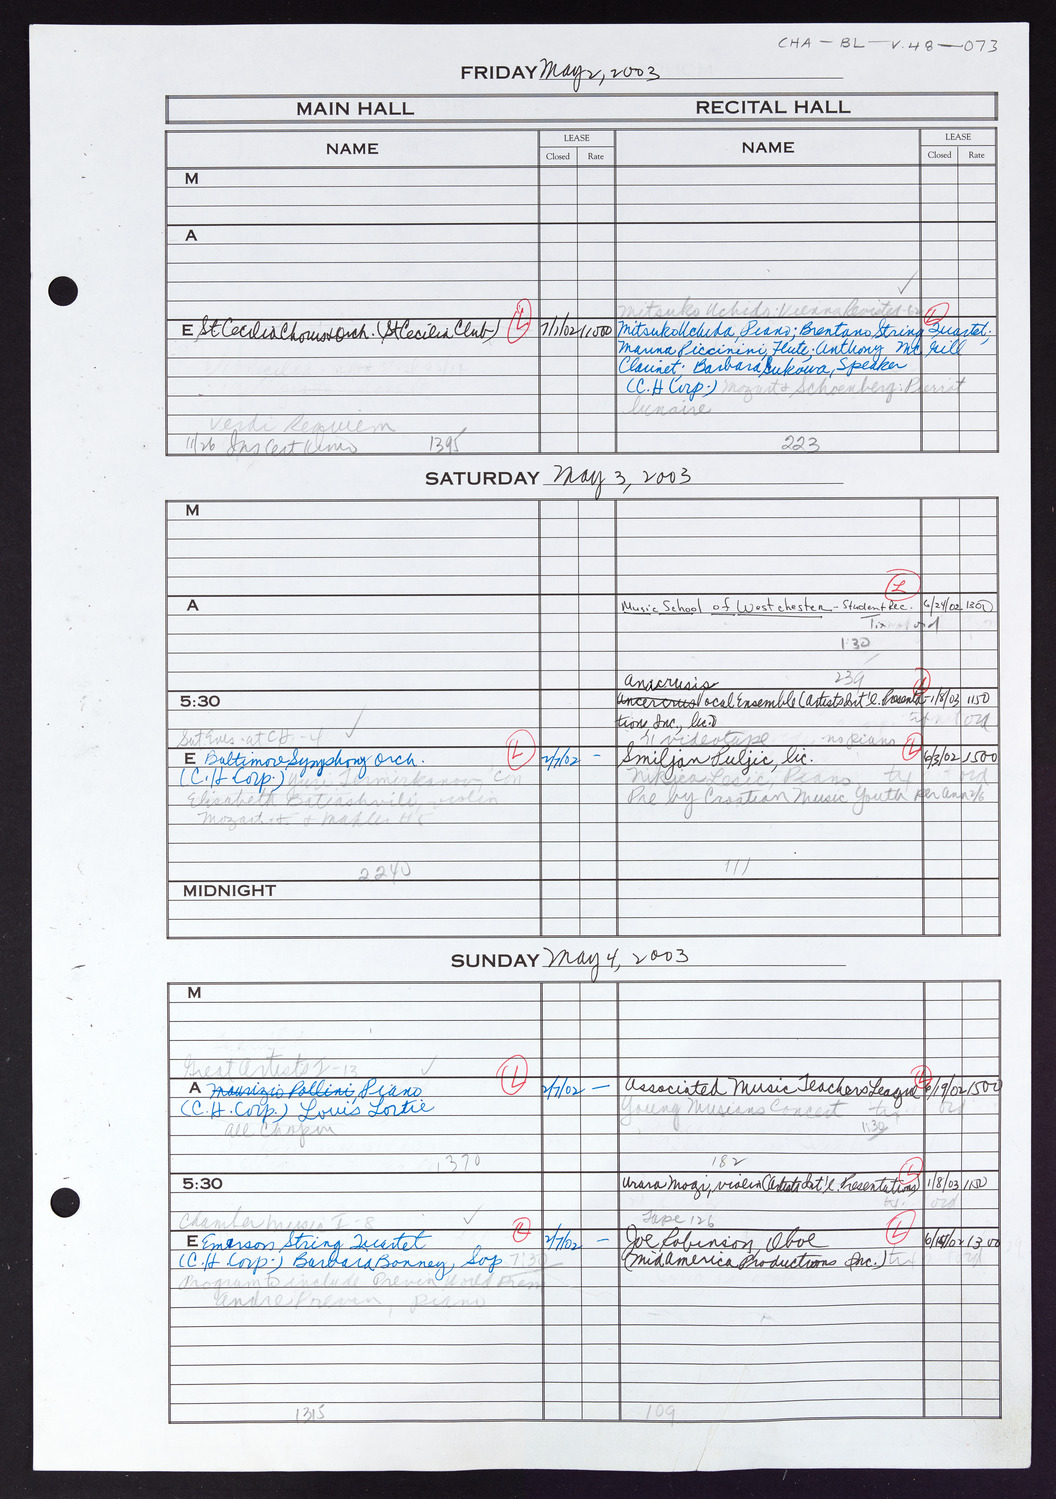 CHA - BL - V.48 - 073
FRIDAY May 2, 2003
MAIN HALL RECITAL HALL
NAME LEASE Closed Rate NAME LEASE Closed Rate
M
A
Mitsuko Uchida: Vienna Revisited
E St Cecilia Chorus & Orch. (St Cecilia Club) L 7/1/02 11000 Mitsuko Uchida, Piano; Brentano String Quartet; L
Marina Piccinini, Flute; Anthony McGill
Clarinet; Barbara Sukowa, Speaker
(C.H Corp.) Mozart & Schoenberg: Pierrot
lunaire
Verdi Requiem
11/26 1395 223
SATURDAY May 3, 2003
M
L
A Music School of Westchester - Student Rec. 6/24/02 1300
Tix ord
1:30
239
Anacrusis L
5:30 ocal Ensemble (Artists Int'l. Presenta- 1/8/03 1150
tions Inc., lic.)
videotype - no piano
Sat Eves - at CH - 4
E Baltimore Symphony Orch. L 2/7/02 - Smiljan Puljic, lic. L 6/3/02 1500
(C.H Corp.) Yuri Temirkanov, Con
Piano
Elisabeth Batiashvili, violin Pre by Croatian Music Youth per Ann 2/6
Mozart & Mahler #5
2240 111
MIDNIGHT
SUNDAY May 4, 2003
M
Great Artists I - 13
A Maurizio Pollini, Piano L 2/7/02 - Associated Music Teachers League L 6/19/02 1500
(C.H. Corp.) Louis Lortie Young Musicians Concert ord
all Chopin 1:30
1370 182
5:30 Urara Mogi, violin (Artists Int'l. Presentations) L 1/8/03 1150
ord
Chamber Music I - 8 Tape 126
E Emerson String Quartet L 2/7/02 - Joe Robinson, Oboe L 6/14/02 1300
(C.H Corp.) Barbara Bonney, Sop 7:30 (MidAmerica Productions Inc.)
Program to include Previn World Prem
Andre Previn, piano
1315 109